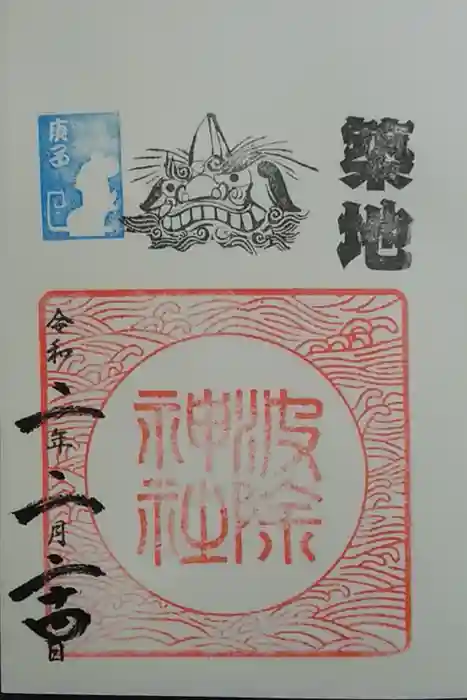 築地
庚子
波除
神社
令和二年二月二十四日